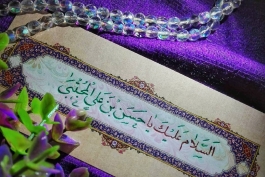 السلام علیک یا حسن بن علی المجتبی